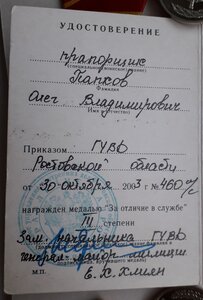 УДОСТОВЕРЕНИЕ
прапорщик
(специальное воинское звание)
Папков
Фамилия
Олег Владимирович
Имя (отчество)
Приказом ГУВД
Ростовской области
от 30 октября 2003 г № 460 л/с
награжден медалью "За отличие в службе"
III степени
Зам. начальника ГУВД
генерал-майор милиции
М.П.